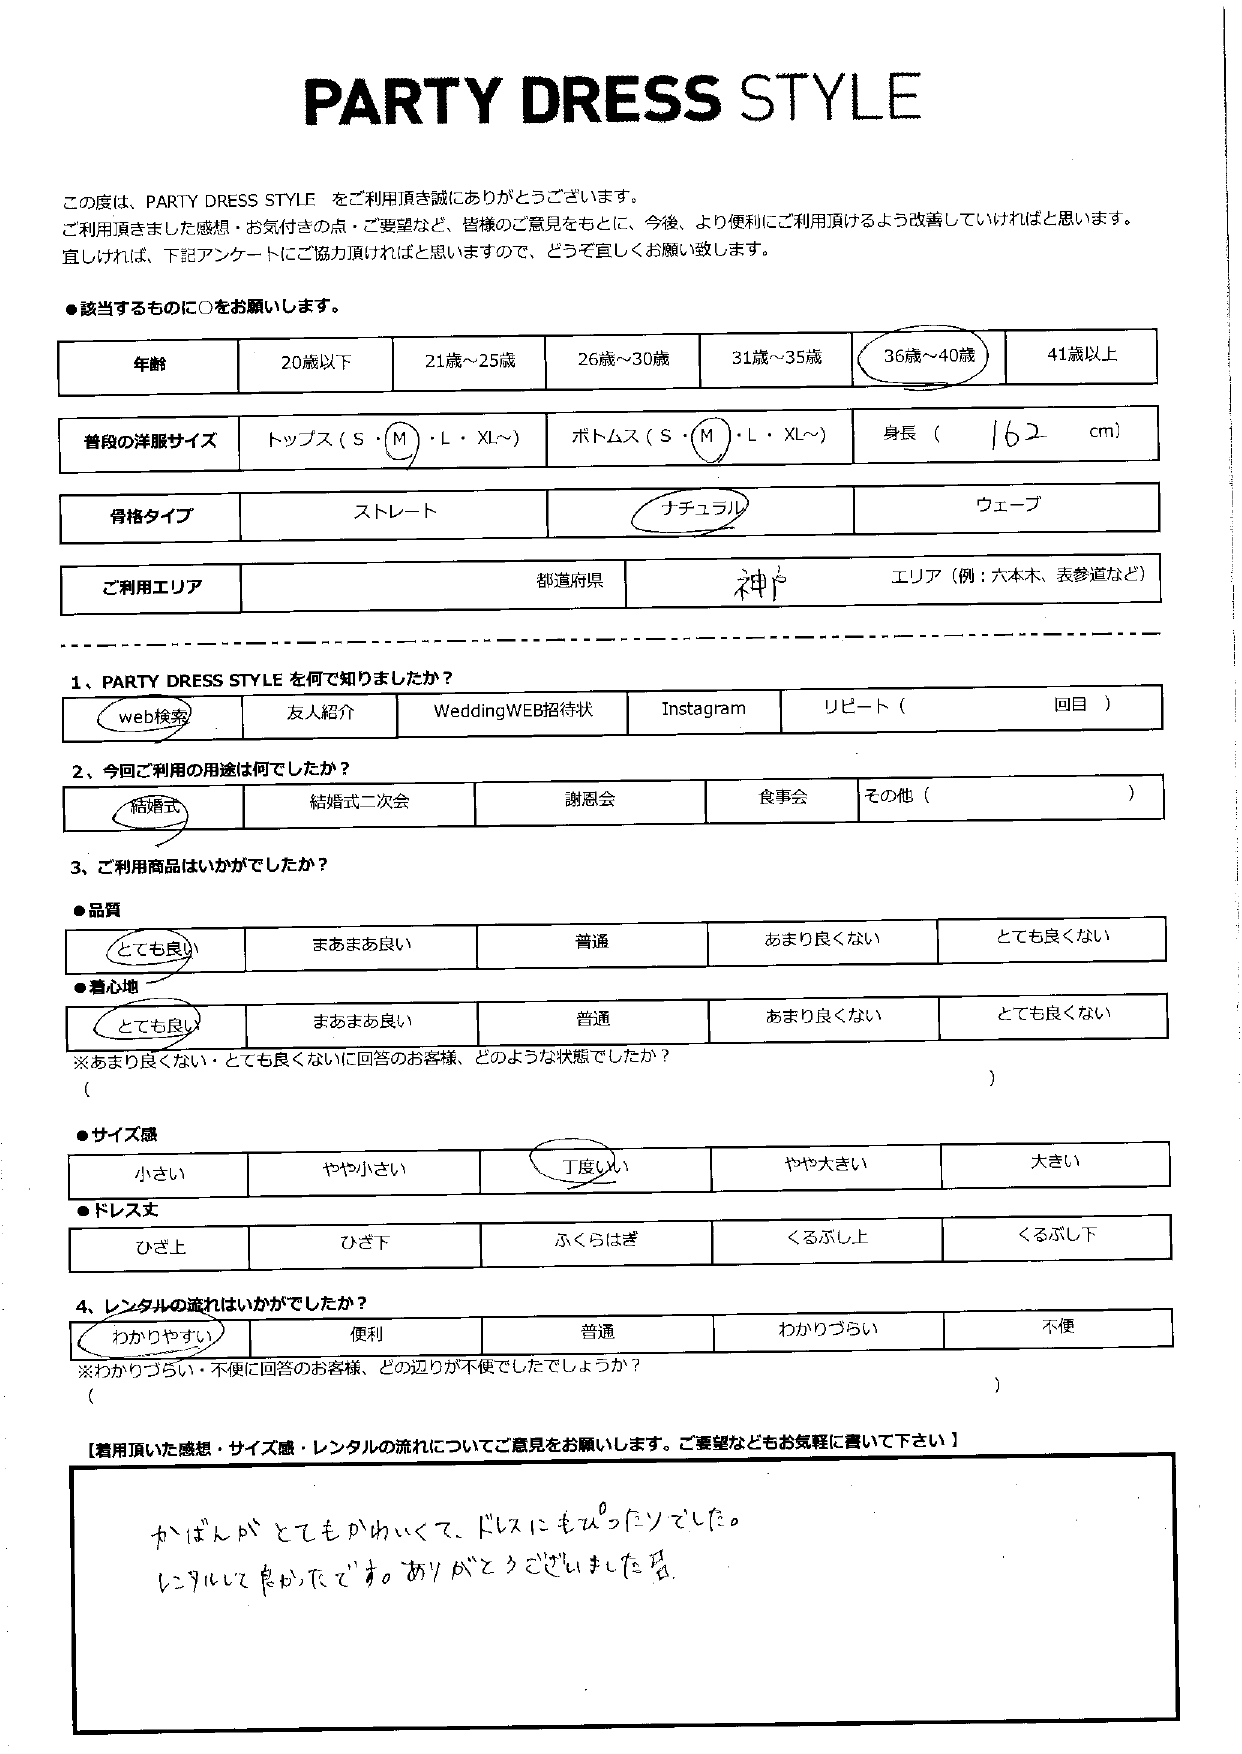 PARTY DRESS STYLE
この度は、PARTY DRESS STYLE をご利用頂き誠にありがとうございます。
ご利用頂きました感想・お気付きの点・ご要望など、皆様のご意見をもとに、今後、より便利にご利用頂けるよう改善していければと思います。
宜しければ、下記アンケートにご協力頂ければと思いますので、どうぞ宜しくお願い致します。
●該当するものに○をお願いします。
年齢 20歳以下 21歳～25歳 26歳～30歳 31歳～35歳 36歳～40歳 41歳以上
普段の洋服サイズ トップス（ S ・ M ・ L ・ XL～） ボトムス（ S ・ M ・ L ・ XL～） 身長 （ 162 cm）
骨格タイプ ストレート ナチュラル ウェーブ
ご利用エリア 都道府県 神戸 エリア（例：六本木、表参道など）
1、PARTY DRESS STYLE を何で知りましたか？
web検索 友人紹介 WeddingWEB招待状 Instagram リピート（ 回目 ）
2、今回ご利用の用途は何でしたか？
結婚式 結婚式二次会 謝恩会 食事会 その他（ ）
3、ご利用商品はいかがでしたか？
●品質
とても良い まあまあ良い 普通 あまり良くない とても良くない
●着心地
とても良い まあまあ良い 普通 あまり良くない とても良くない
※あまり良くない・とても良くないに回答のお客様、どのような状態でしたか？
（ ）
●サイズ感
小さい やや小さい 丁度いい やや大きい 大きい
●ドレス丈
ひざ上 ひざ下 ふくらはぎ くるぶし上 くるぶし下
4、レンタルの流れはいかがでしたか？
わかりやすい 便利 普通 わかりづらい 不便
※わかりづらい・不便に回答のお客様、どの辺りが不便でしたでしょうか？
（ ）
【着用頂いた感想・サイズ感・レンタルの流れについてご意見をお願いします。ご要望などもお気軽に書いて下さい 】
かばんがとてもかわいくて、ドレスにもぴったりでした。
レンタルして良かったです。ありがとうございました